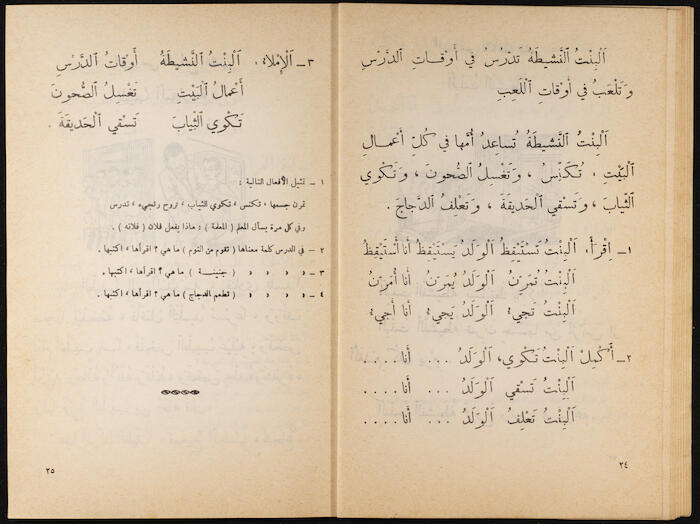 اَلْبِنْتُ ٱلنَّشِيطَةُ تَدْرُسُ في أَوْقَاتِ ٱلدَّرْسِ
وَتَلْعَبُ في أَوْقَاتِ ٱللَّعِبِ
اَلْبِنْتُ ٱلنَّشِيطَةُ تُسَاعِدُ أُمَّها في كُلِّ أَعْمَالِ
ٱلْبَيْتِ : تُكَنِّسُ ، وَتَغْسِلُ ٱلصُّحُونَ ، وَتَكْوِي
ٱلثِّيابَ ، وَتَسْقي ٱلْحَديقَةَ ، وَتَعْلِفُ ٱلدَّجاجَ .
١ – اِقْرَأْ : اَلْبِنْتُ تَسْتَيْقِظُ اَلْوَلَدُ يَسْتَيْقِظُ أَنا أَسْتَيْقِظُ
اَلْبِنْتُ تُمَرِّنُ اَلْوَلَدُ يُمَرِّنُ أَنا أُمَرِّنُ
اَلْبِنْتُ تَجِيءُ اَلْوَلَدُ يَجِيءُ أَنا أَجِيءُ
٢ – أَكْمِلْ اَلْبِنْتُ تَكْوِي، اَلْوَلَدُ ... أَنا ....
اَلْبِنْتُ تَسْقي اَلْوَلَدُ ... أَنا ....
اَلْبِنْتُ تَعْلِفُ اَلْوَلَدُ ... أَنا ....
٢٤
٣ – اَلْإِمْلاءُ : اَلْبِنْتُ ٱلنَّشيطَةُ أَوْقَاتُ ٱلدَّرْسِ
أَعْمَالُ ٱلْبَيْتِ تَغْسِلُ ٱلصُّحُونَ
تَكْوي ٱلثِّيابَ تَسْقي ٱلْحَديقَةَ .
١ – تمثيل الأفعال التالية :
تمرن جسمها ، تكنس ، تكوي الثياب ، تروح وتجيء ، تدرس
وفي كل مرة يسأل المعلم ( المعلمة ) : ماذا يفعل فلان ( فلانة ) .
٢ – في الدرس كلمة معناها ( تقوم من النوم ) ما هي ؟ اقرأها ، اكتبها .
٣ – » » » » ( جنينة ) ما هي ؟ اقرأها ، اكتبها .
٤ – » » » » ( تطعم الدجاج ) ما هي ؟ اقرأها ، اكتبها .
٢٥